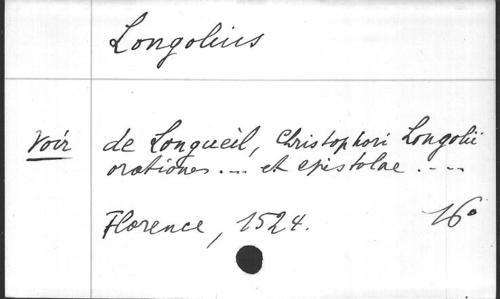 Longolius
Voir de Longueil, Christophori Longolii
orationes ... et epistolae ....
Florence, 1524. 16°